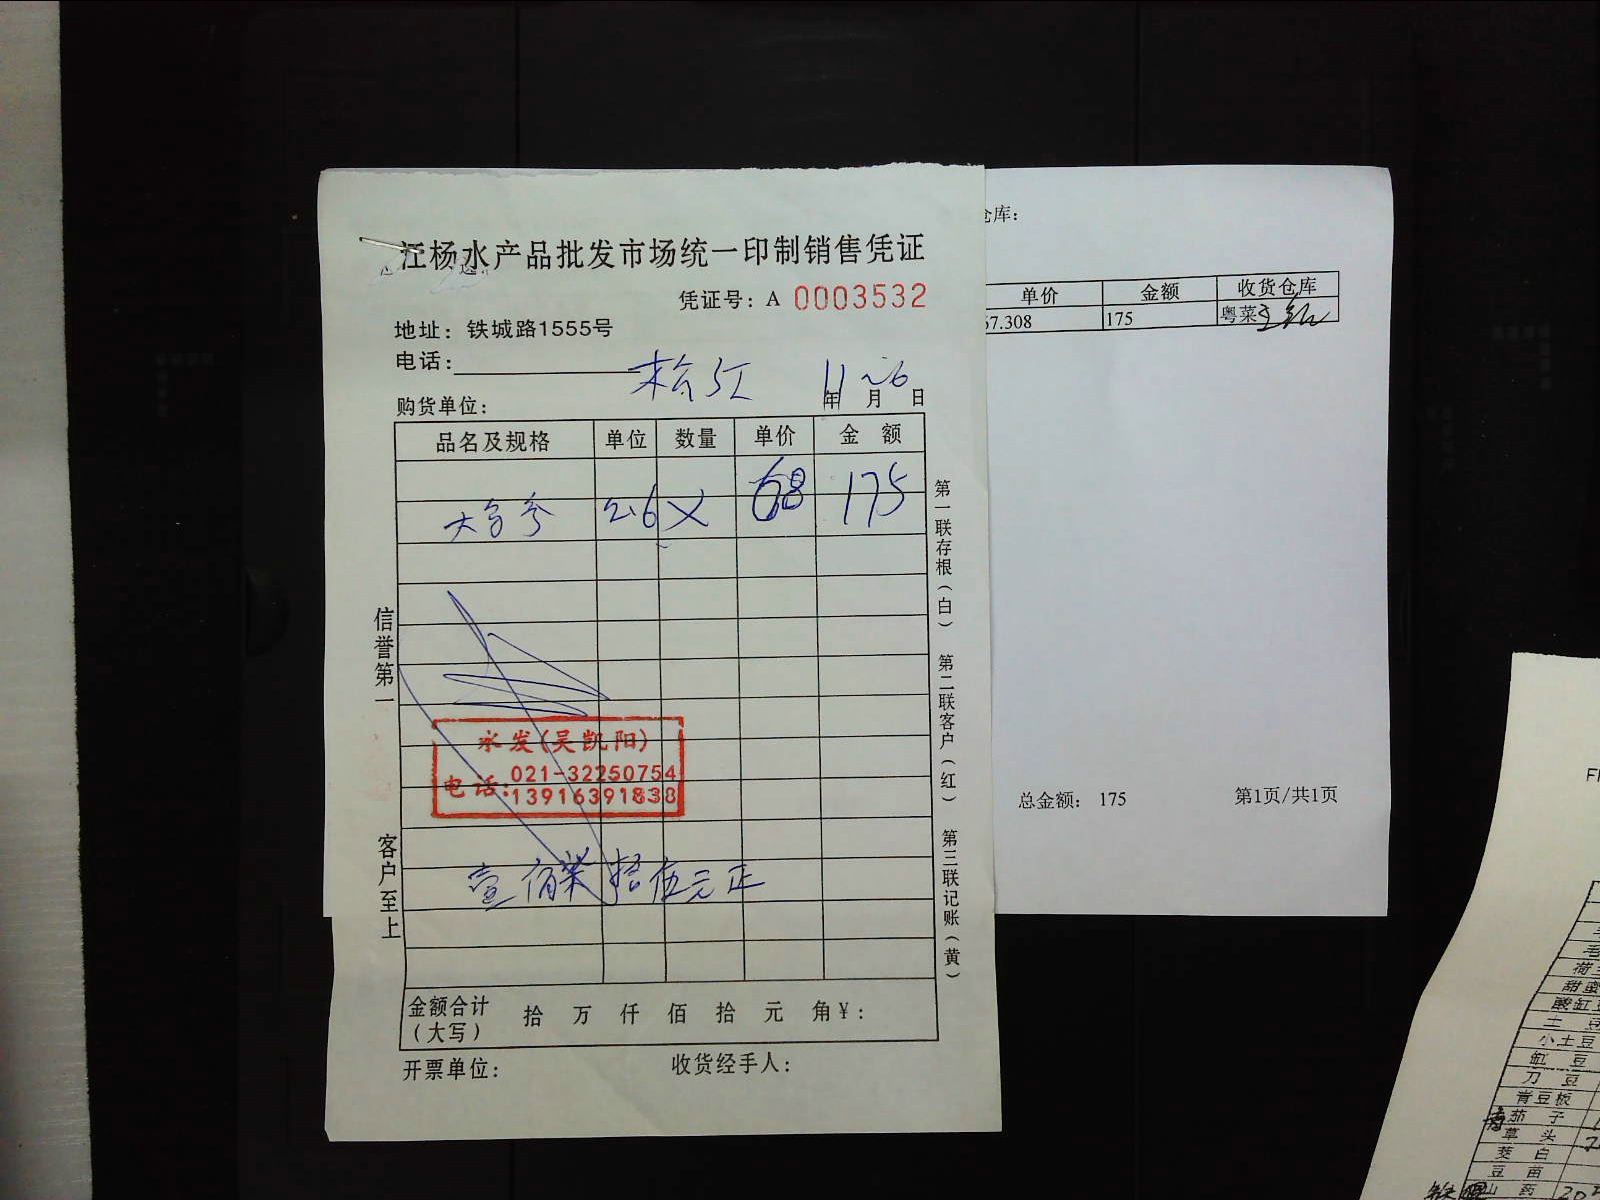 江杨水产品批发市场统一印制销售凭证
凭证号：A 0003532
地址：铁城路1555号
电话：
11 26
购货单位： 年 月 日
品名及规格 单位 数量 单价 金 额
2.6 × 68 175
信誉第一
客户至上
永发(吴凯阳)
电话:021-32250754
13916391838
壹佰柒拾伍元正
金额合计（大写） 拾 万 仟 佰 拾 元 角￥:
开票单位: 收货经手人:
第一联存根（白） 第二联客户（红） 第三联记账（黄）
仓库：
单价 金额 收货仓库
67.308 175 粤菜
总金额： 175 第1页/共1页
甜蜜
酸缸豆
土 豆
小土豆
缸 豆
刀 豆
青豆板
茄 子
草 头
茭 白
豆 苗
山 药